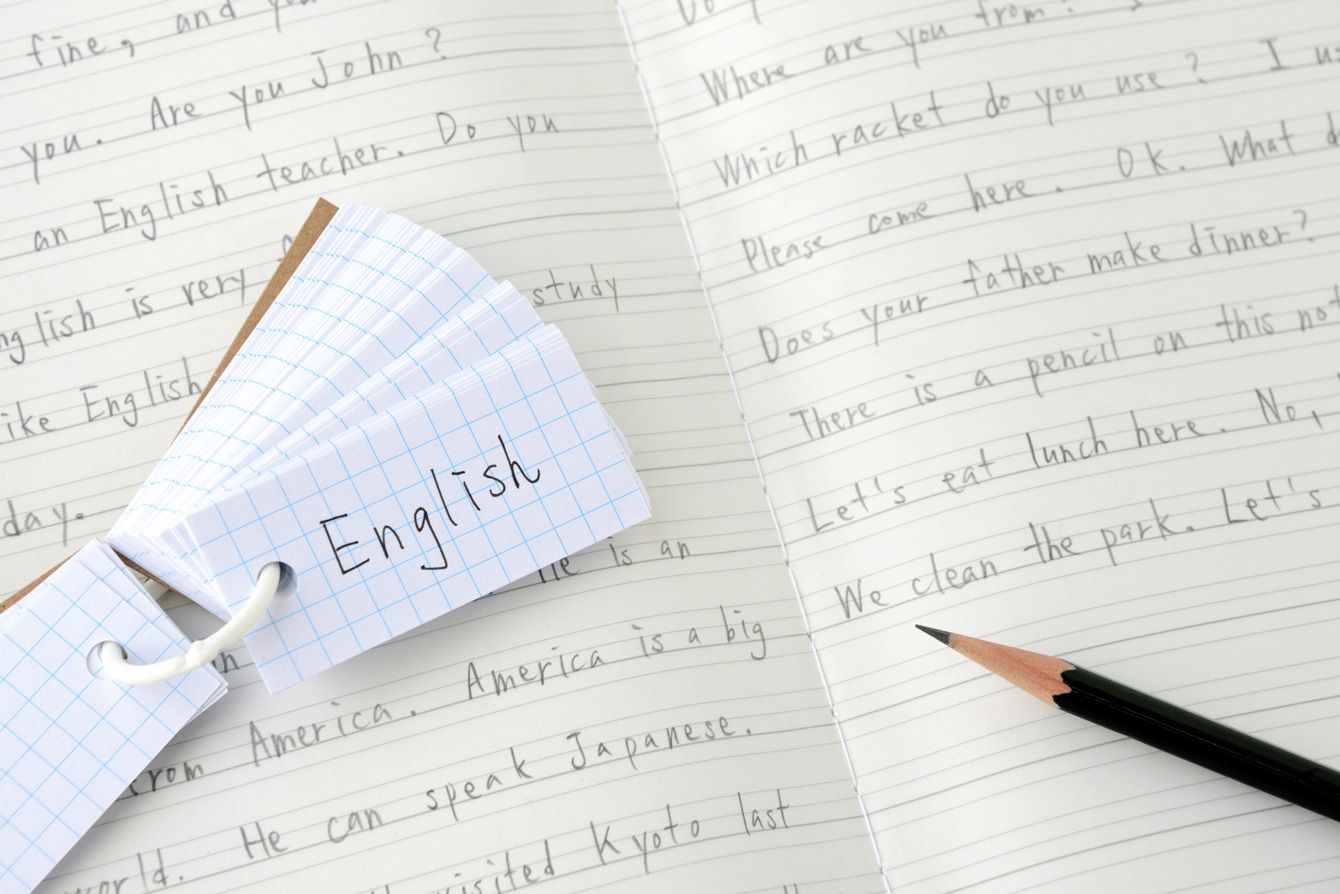 fine, and you
you. Are you John?
an English teacher. Do you
English is very
study
like English
day.
English
He is an
America is a big
from America.
He can speak Japanese.
world.
visited Kyoto last
Where are you from?
Which racket do you use? I
Please come here. Ok. What
Does your father make dinner?
There is a pencil on this
Let's eat lunch here. No,
We clean the park. Let's